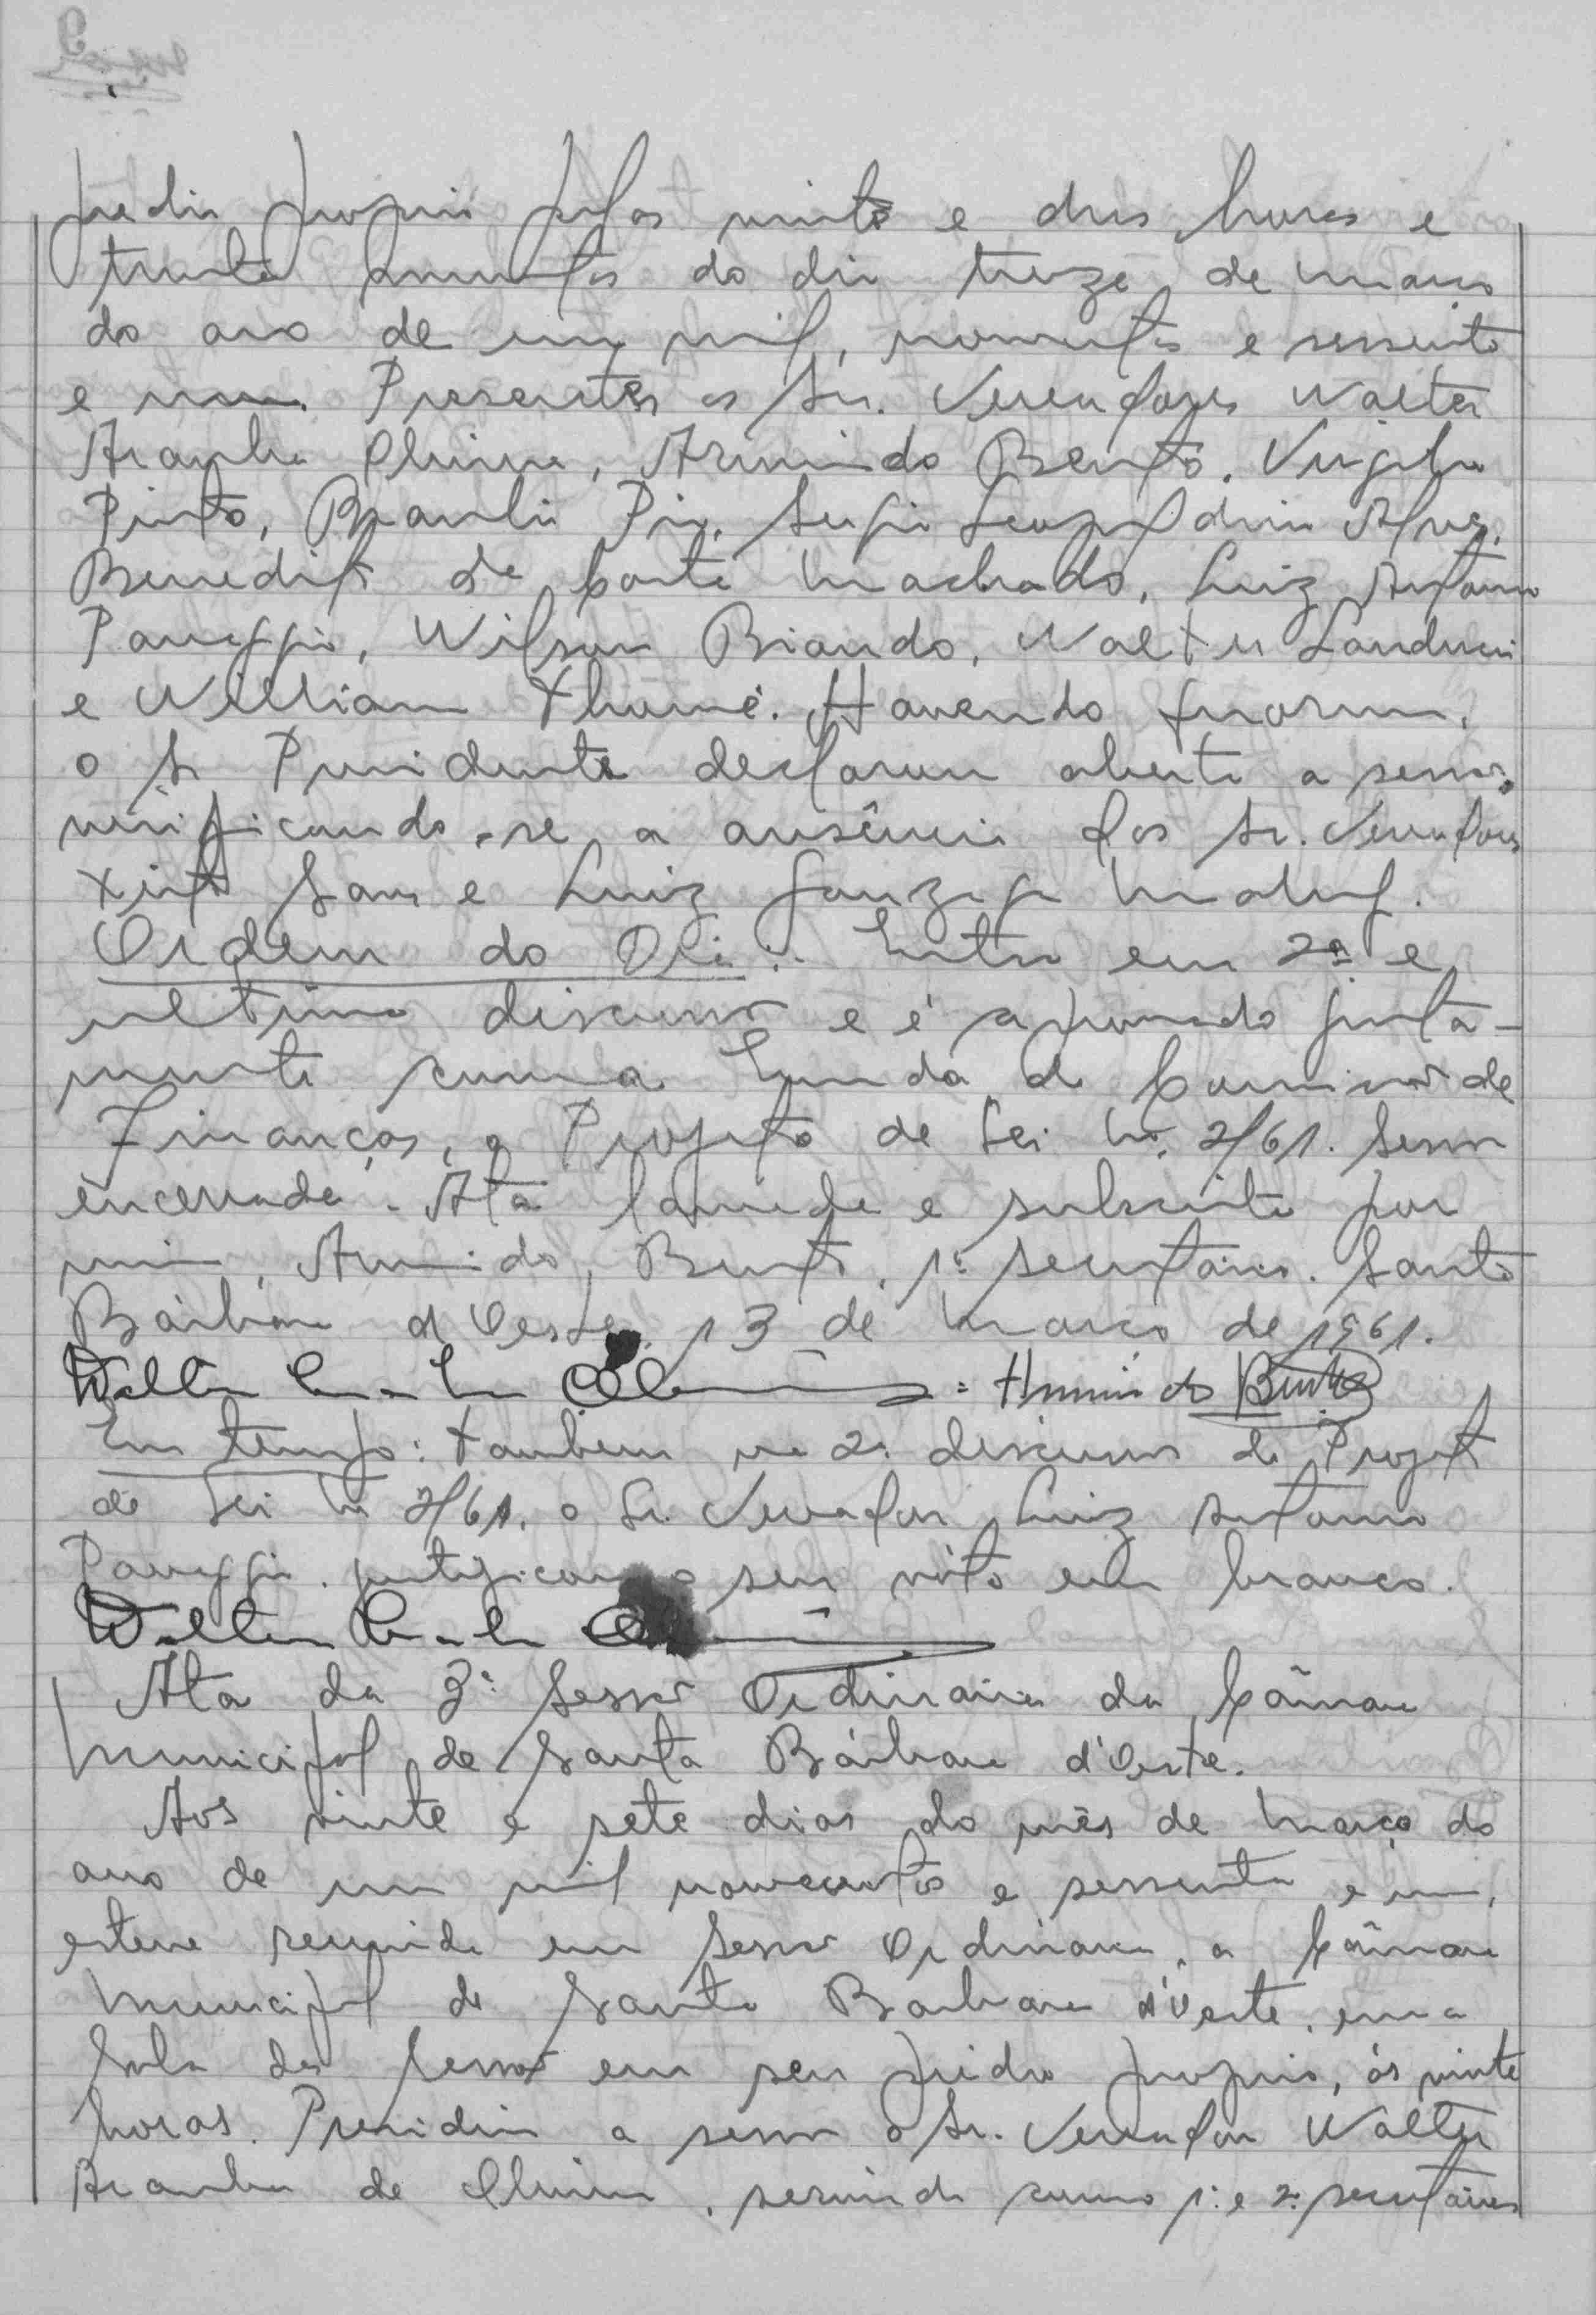 predio proprio pelas vinte e duas horas e
trinta minutos do dia treze de março
do ano de um mil, novecentos e sessenta
e um. Presentes os Srs. Vereadores Walter
Aranha Oliveira, Armindo Bento, Virgilio
Pinto, Braulio Pio, Sergio Leopoldino Alves,
Benedito da Costa Machado, Luiz Antonio
Panaggio, Wilson Biando, Walter Landucci
e William Thomé. Havendo quorum,
o Sr Presidente declarou aberta a sessão,
verificando-se a ausência dos Sr. Vereadores
e Luiz Gonzaga
Ordem do Dia: Entra em 2ª e
ultima discussão e é aprovado junta-
mente com a Emenda da Comissão de
Finanças, o Projeto de Lei nº 2/61. Sessão
encerrada. Ata lavrada e subscrita por
mim, Armindo Bento, 1º secretário. Santa
Bárbara d'Oeste, 13 de março de 1961.
Armindo Bento
Em tempo: Também na 2ª discussão do Projeto
de Lei nº 2/61, o Sr. Vereador Luiz Antonio
Panaggio justificou o seu voto em branco.
Ata da 3ª Sessão Ordinaria da Câmara
Municipal de Santa Bárbara d'Oeste.
Aos vinte e sete dias do mês de março do
ano de um mil novecentos e sessenta e um,
esteve reunida em Sessão Ordinaria, a Câmara
Municipal de Santa Barbara d'Oeste, em a
Sala das Sessões em seu predio proprio, ás vinte
horas. Presidiu a sessão o Sr. Vereador Walter
Aranha de Oliveira, servindo como 1º e 2º secretários